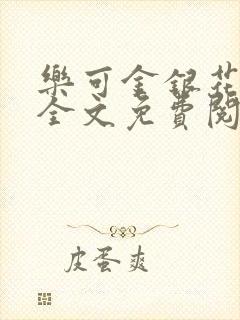 樂可金銀花
全文免費閱
皮蛋爽